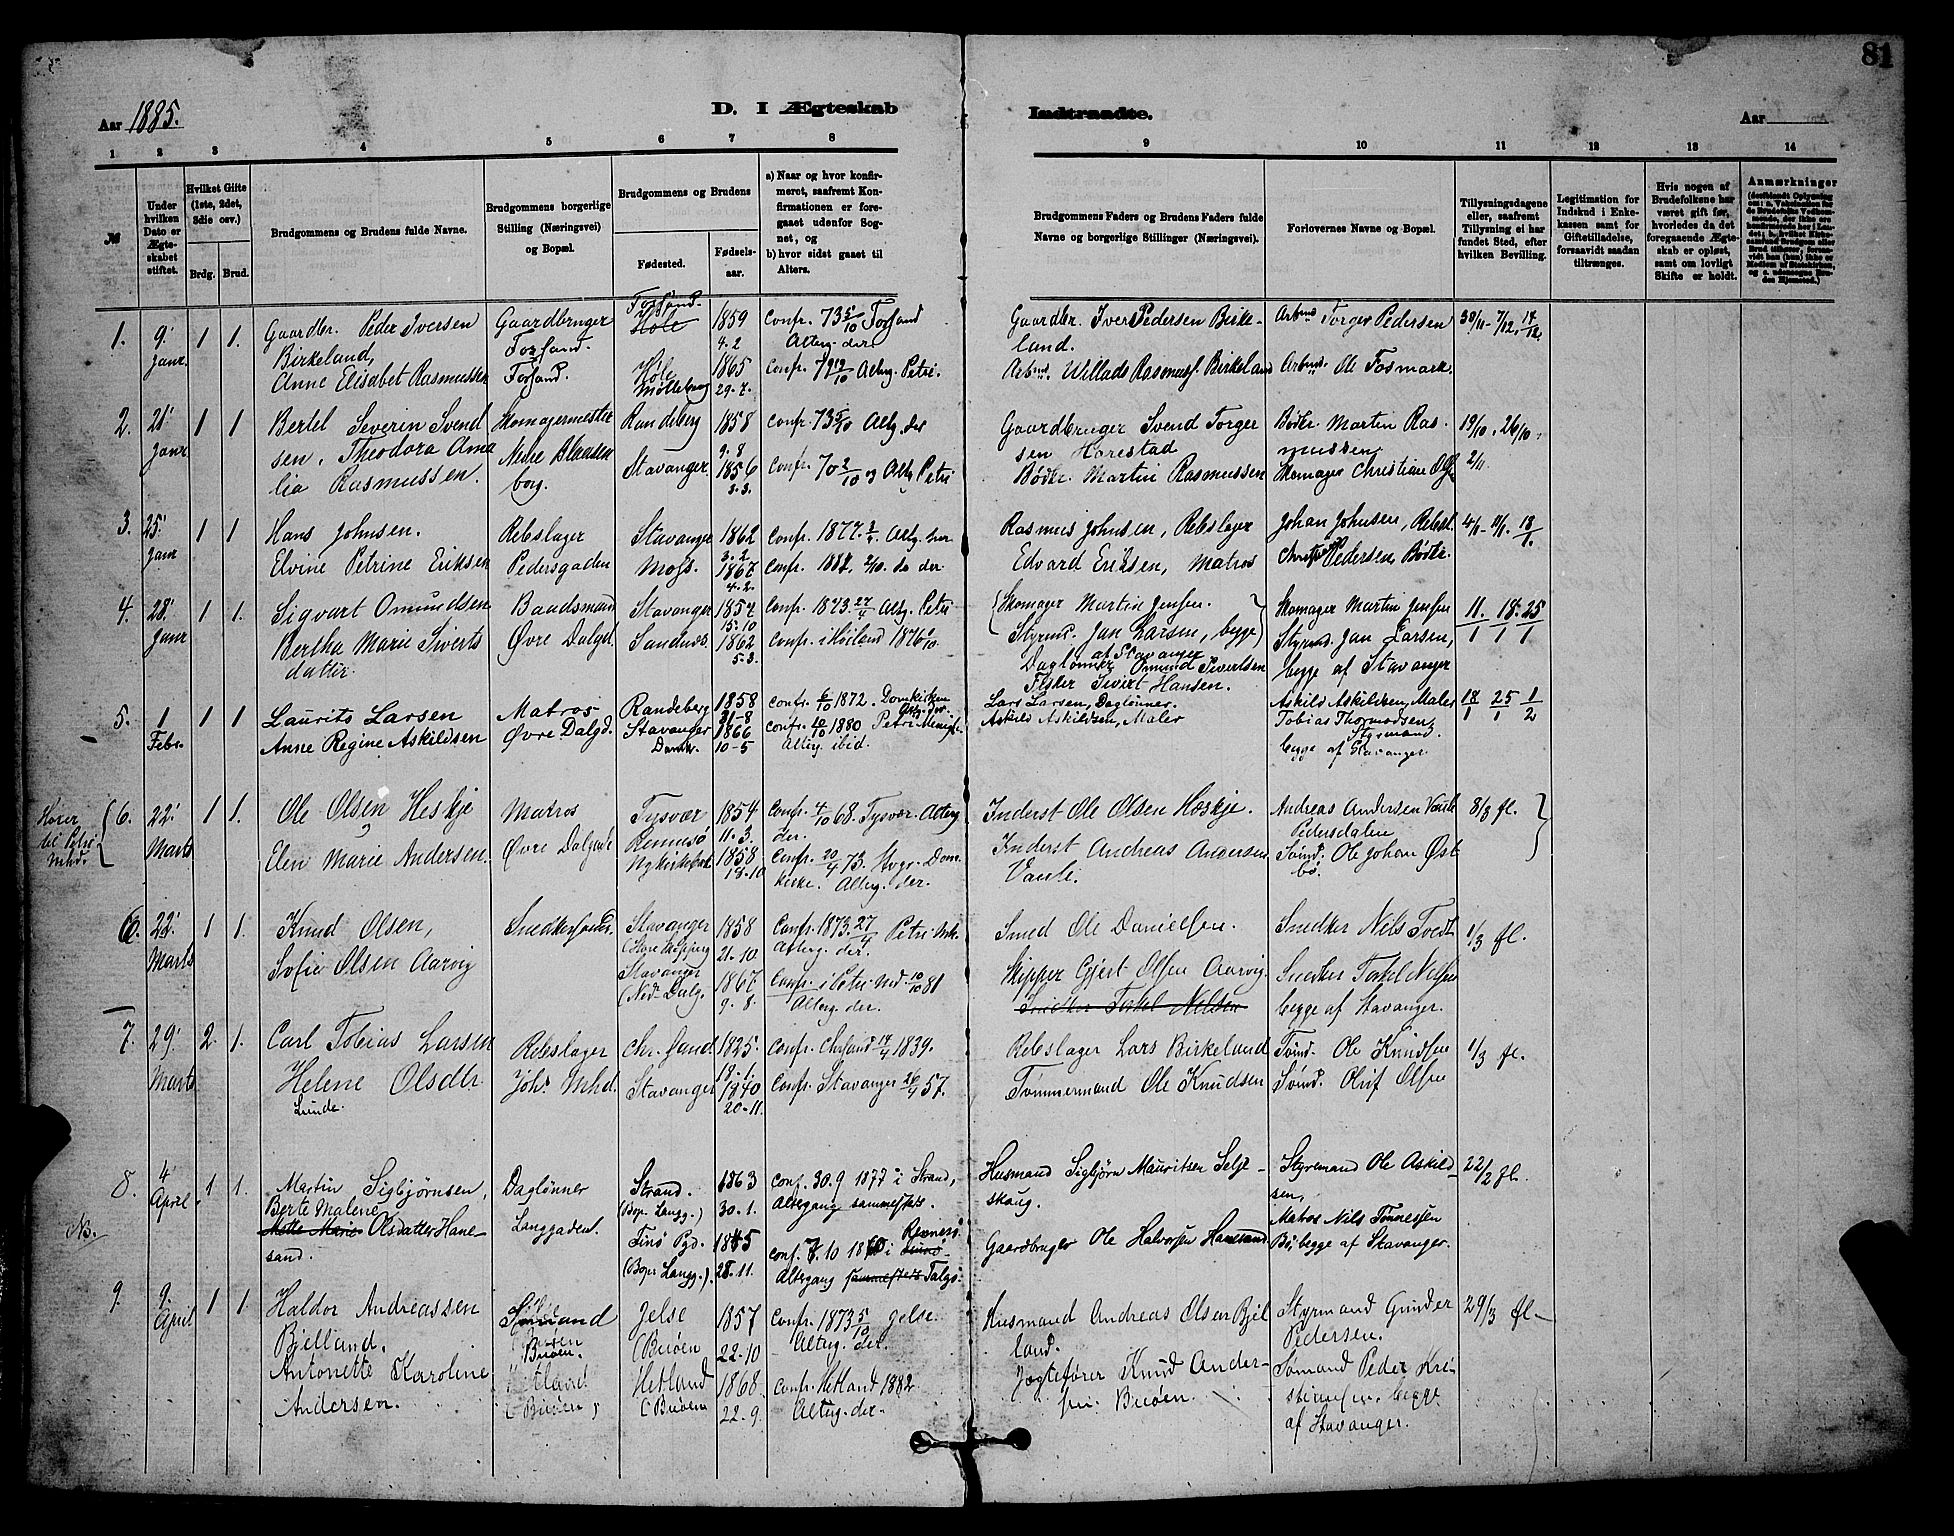 81
Aar 1885.
D. I Ægteskab
Indtraadte.
Aar
1 2 3 4 5 6 7 8 9 10 11 12 13 14
№
Under hvilken Dato er Ægteskabet stiftet.
Hvilket Gifte (1ste, 2det, 3die osv.)
Brdg. Brud.
Brudgommens og Brudens fulde Navne.
Brudgommens borgerlige Stilling (Næringsvei) og Bopæl.
Brudgommens og Brudens
Fødested.
Fødselsaar.
a) Naar og hvor konfirmeret, saafremt Konfirmationen er foregaaet udenfor Sognet, og
b) hvor sidst gaaet til Alters.
Brudgommens Faders og Brudens Faders fulde Navne og borgerlige Stillinger (Næringsvei).
Forlovernes Navne og Bopæl.
Tillysningsdagene eller, saafremt Tillysning ei har fundet Sted, efter hvilken Bevilling.
Legitimation for Indskud i Enkekassen samt for Giftetilladelse, forsaavidt saadan tiltrænges.
Hvis nogen af Brudefolkene har været gift før, hvorledes da det foregaaende Ægteskab er opløst, samt om lovligt Skifte er holdt.
Anmærkninger
1. 9' Janr. 1 1. Gaardbr. Peder Iversen
Birkeland,
Anne Elisabet Rasmussen
Gaardbruger
Forsand.
Forsand.
Forsand.
Hole
Høle
Mølleberg
1859
4-2
1865
29-7.
Confr. 73 5/10 Forsand
Alterg. der
Confr. 79 12/10 Alterg. Petri.
Gaardbr. Iver Pedersen Birke-
land.
Arbmd. Willads Rasmuss. Birkeland
Arbmd Torger Pedersen
Arbmd. Ole Fosmark
30/11 - 7/12, 14/12
2. 21' Janr 1 1 Bertel Severin Svend
sen. Theodora Ama
lia Rasmussen.
Skomagermester
Nedre Blaasen
borg.
Randeberg
Stavanger
1858
9-8
1856
3-3.
Confr. 73 5/10 Alterg. der
Confr. 70 2/10 og Alterg. Petri
Gaardbruger Svend Torger
sen Harestad
Bødkr. Martin Rasmussen
Bødkr. Martin Ras-
mussen
Skomager Christian Olsen
19/10, 26/10,
2/11
3. 25' Janr 1 1 Hans Johnsen.
Elvine Petrine Eriksen
Rebslager
Pedersgaden
Stavanger
Moss.
1862
3-2
1867
4-2.
Confr. 1877. Alterg. her
Confr. 1882. 2/10. do der
Rasmus Johnsen, Rebslager
Edvard Eriksen, Matros
Johan Johnsen, Rebsl.
Pedersen, Bødkr.
4/1 - 11/1. 18/1.
4. 28' Janr 1 1. Sigvart Omundsen
Bertha Marie Siverts
datter.
Baadsmand
Øvre Dalgd.
Stavanger
Sandnes
1857
15-10
1862
5-3.
Confr. 1873. 27/4 Alterg. Petri
Confr. i Høiland 1876
Skomager Martin Jensen.
Styrmd. Jan Larsen, begge
af Stavanger
Daglønner Omund Sivertsen
Fisker Sivert Hansen.
Skomager Martin Jensen
Styrmd. Jan Larsen,
begge af Stavanger
11/1. 18/1. 25/1
5. 1 Febr. 1 1 Laurits Larsen
Anne Regine Askildsen
Matros
Øvre Dalgd.
Randeberg
Stavanger
Domk.
1858
31-8
1866
10-5
confr. 6/10 1872. Domkirken
Altg. der.
confr. 10/10 1880 Petri Menigh.
Alterg. ibid.
Lars Larsen, Daglønner.
Askild Askildsen, Maler
Askild Askildsen, Maler
Tobias Thormodsen,
Styrmand
begge af Stavanger
18/1 25/1 1/2
Hører
til Petri
Mhd.
6. 22' Marts 1 1. Ole Olsen Heskje
Elen Marie Andersen.
Matros
Øvre Dalgade
Tysvær
Rennesø
1854
11-3.
1858
18-10
Confr. 4/10 68. Tysvær. Alterg
der.
Confr. 20/4 73. Stvgr. Dom-
kirke. Alterg. der.
Inderst Ole Olsen Heskje.
Inderst Andreas Andersen
Vaule.
Andreas Andersen Vaule
Pedersdalen
Sømd. Ole Johan Øst
bø.
8/3 fl.
6. 22' Marts 1 1. Knud Olsen,
Sofie Olsen Aarvig
Snedkersvend.
Stavanger
Stavanger
(Nedr Dalg.
1858
21-10
1867
9-8.
Confr. 1873. 27/4 Petri Mk.
Alterg. der.
Confr. i Petri Md. 10/10 81
Alterg. der.
Smed Ole Danielsen.
Skipper Gjert Olsen Aarvig.
Snedker Takel Nilsen
Snedker Nils Tvedt
Snedker Takel Nilsen
begge af Stavanger.
1/3 fl.
7. 29' Marts 2. 1. Carl Tobias Larsen
Helene Olsdtr.
Lunde.
Rebslager
Johs. Mhd.
Chr.sand.
Stavanger
1825.
18-1.
1840
20-11.
Confr. Chrsand 14/4 1839.
Confr. Stavanger 26/4 57.
Rebslager Lars Birkeland
Tømmermand Ole Knudsen
Tømd. Ole Knudsen
Sømd. Oluf Olsen
1/3 fl.
8. 4' April 1 1. Martin Sigbjørnsen,
Berte Malene
Mette Marie Olsdatter Hane-
sand.
Nb.
Daglønner
Langgaden.
Strand.
(Bop. Langg.)
Finø Pgd.
(Bop. Langg.).
1863
30.1.
1845
28.11.
Conf. 30.9 1877 i Strand,
Altergang sammesteds.
Rennesø
Altergang sammesteds Talgø.
Husmand Sigbjørn Mauritsen Selje-
skaug.
Gaardbruger Ole Halvorsen Hanesand
Styrmand Ole Askild
sen,
Matros Nils Tønnessen
Bø, begge af Stavanger.
22/2 fl.
9. 9. April 1 1. Haldor Andreassen
Bjelland.
Antonette Karoline
Andersen.
Sømand
Buøen.
Hetland
(Buøen)
Jelse
(Buøen
Hetland
(Buøen
1857
22-10
1868
22-9.
Confr. 1873 5/10 Jelse.
Alterg. der.
Confr. Hetland 1882
Alterg. der.
Husmand Andreas Olsen Bjel
land.
Jagtefører Knud Ander-
sen. Buøen.
Styrmand Gunder
Pedersen.
Sømand Peder Kri-
stensen, begge
af Stavanger.
29/3 fl.